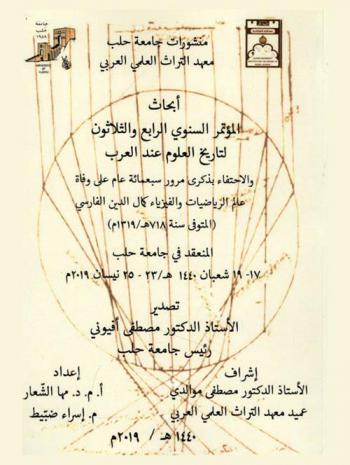 جامعة
حلب
١٩٥٨
منشورات جامعة حلب
معهد التراث العلمي العربي
أبحاث
المؤتمر السنوي الرابع والثلاثون
لتاريخ العلوم عند العرب
والاحتفاء بذكرى مرور سبعمائة عام على وفاة
عالم الرياضيات والفيزياء كمال الدين الفارسي
(المتوفى سنة ٧١٨هـ/١٣١٩م)
المنعقد في جامعة حلب
١٧- ١٩ شعبان ١٤٤٠ هـ/٢٣ - ٢٥ نيسان ٢٠١٩م
تصدير
الأستاذ الدكتور مصطفى أفيوني
رئيس جامعة حلب
إشراف
الأستاذ الدكتور مصطفى موالدي
عميد معهد التراث العلمي العربي
إعداد
أ. م. د. مها الشّعار
م. إسراء ضبّيط
١٤٤٠ هـ / ٢٠١٩م